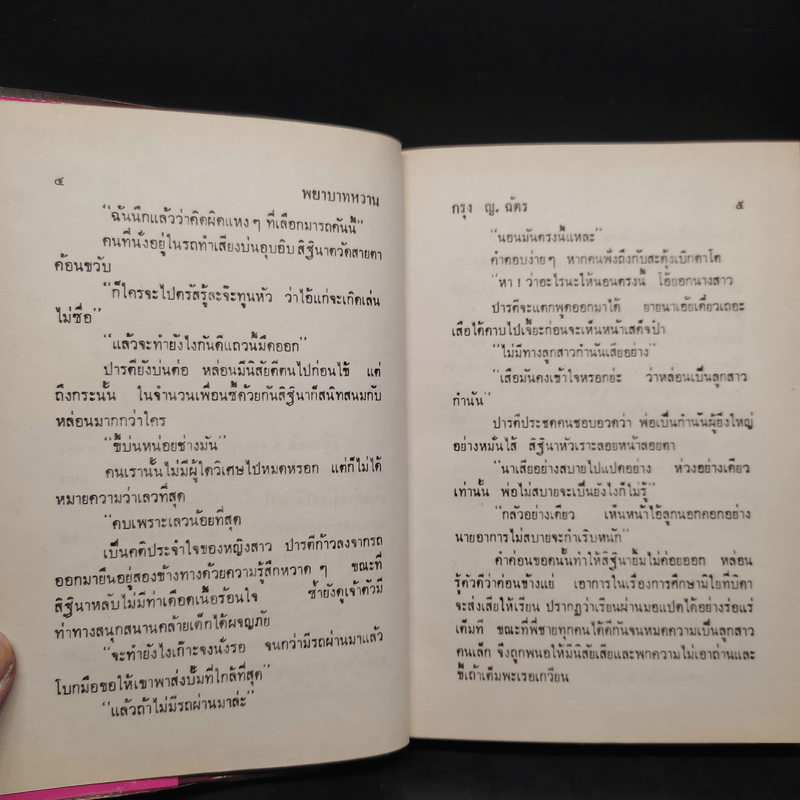 ๔
พยาบาทหวาน
“ฉันนึกแล้วว่าคิดผิดแหง ๆ ที่เลือกมารถคันนี้”
คนที่นั่งอยู่ในรถทำเสียงบ่นอุบอิบ สิฐินาตวัดสายตา
ค้อนขวับ
“ก็ใครจะไปตรัสรู้ล่ะจ๊ะทูนหัว ว่าไอ้แก่จะเกิดเล่น
ไม่ซื่อ”
“แล้วจะทำยังไงกันดีแถวนี้มืดออก”
ปารตียังบ่นต่อ หล่อนมีนิสัยตีตนไปก่อนไข้ แต่
ถึงกระนั้น ในจำนวนเพื่อนซี้ด้วยกันสิฐินาก็สนิทสนมกับ
หล่อนมากกว่าใคร
“ขี้บ่นหน่อยช่างมัน”
คนเรานั้นไม่มีผู้ใดวิเศษไปหมดหรอก แต่ก็ไม่ได้
หมายความว่าเลวที่สุด
“คบเพราะเลวน้อยที่สุด
เป็นคติประจำใจของหญิงสาว ปารตีก้าวลงจากรถ
ออกมายืนอยู่สองข้างทางด้วยความรู้สึกหวาด ๆ ขณะที่
สิฐินาหลับไม่มีท่าเดือดเนื้อร้อนใจ ซ้ำยังดูเจ้าตัวมี
ท่าทางสนุกสนานคล้ายเด็กได้ผจญภัย
“จะทำยังไงเก๊าะจงนั่งรอ จนกว่ามีรถผ่านมาแล้ว
โบกมือขอให้เขาพาส่งปั๊มที่ใกล้ที่สุด”
“แล้วถ้าไม่มีรถผ่านมาล่ะ”
กรุง ญ. ฉัตร
๕
“นอนมันตรงนี้แหละ”
คำตอบง่าย ๆ หากคนฟังถึงกับสะดุ้งเบิกตาโต
“หา ! ว่าอะไรนะให้นอนตรงนี้ โอ้ยอกนางสาว
ปารตีจะแตกพูดออกมาได้ ยายนาเอ๊ยเดี๋ยวเถอะ
เสือได้คาบไปเจี๊ยะก่อนจะเห็นหน้าเสด็จป๋า
“ไม่มีทางลูกสาวกำนันเสียอย่าง”
“เสือมันคงเข้าใจหรอกย่ะ ว่าหล่อนเป็นลูกสาว
กำนัน”
ปารตีประชดคนชอบอวดว่า พ่อเป็นกำนันผู้ยิ่งใหญ่
อย่างหมั่นไส้ สิฐินาหัวเราะลอยหน้าลอยตา
“นาเสียอย่างสบายไปแปดอย่าง ห่วงอย่างเดียว
เท่านั้น พ่อไม่สบายจะเป็นยังไงก็ไม่รู้”
“กลัวอย่างเดียว เห็นหน้าไอ้ลูกนอกคอกอย่าง
นายอาการไม่สบายจะกำเริบหนัก”
คำค่อนขอดนั้นทำให้สิฐินายิ้มไม่ค่อยออก หล่อน
รู้ตัวดีว่าค่อนข้างแย่ เอาการในเรื่องการศึกษามิใยที่บิดา
จะส่งเสียให้เรียน ปรากฏว่าเรียนผ่านมอแปดได้อย่างร่อแร่
เต็มที ขณะที่พี่ชายทุกคนได้ดีกันจนหมดความเป็นลูกสาว
คนเล็ก จึงถูกพนอให้มีนิสัยเสียและพกความไม่เอาถ่านและ
ขี้เถ้าเต็มพะเรอเกวียน